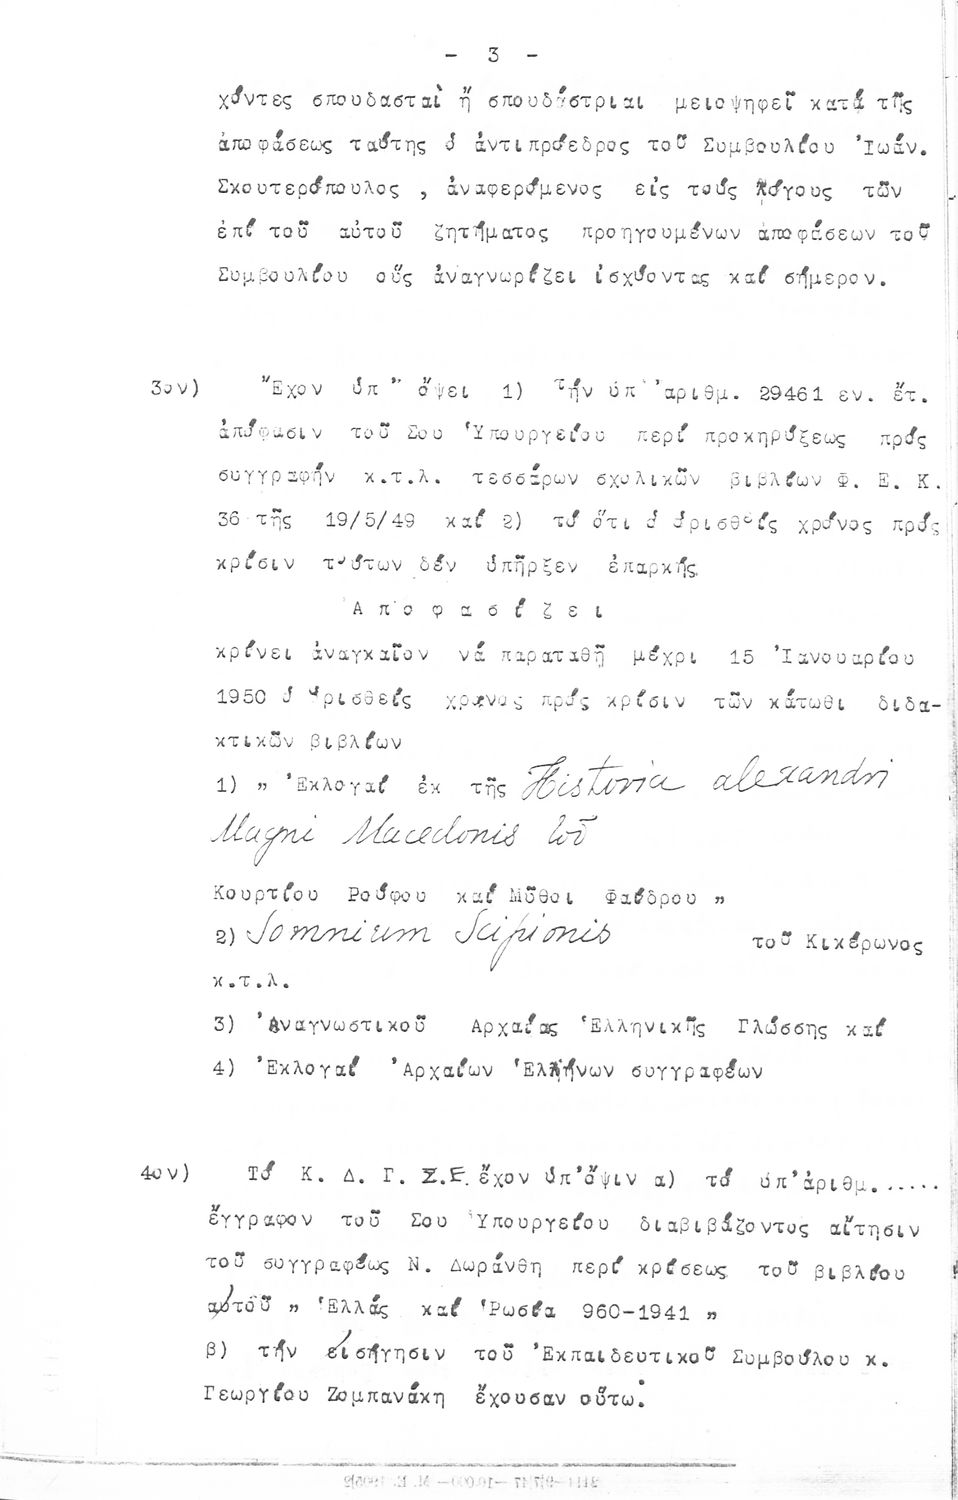 - 3 -
χόντες σπουδασταὶ ἤ σπουδάστριαι μειοψηφεῖ κατά τῆς
ἀποφάσεως ταύτης ὁ ἀντιπρόεδρος τοῦ Συμβουλίου Ἰωάν.
Σκουτερόπουλος , ἀναφερόμενος εἰς τούς λόγους τῶν
ἐπί τοῦ αὐτοῦ ζητήματος προηγουμένων ἀποφάσεων τοῦ
Συμβουλίου οὕς ἀναγνωρίζει ἰσχύοντας καί σήμερον.
3ον) Ἔχον ὑπ' ὄψει 1) Τήν ὑπ' ἀριθμ. 29461 εν. ἔτ.
ἀπόφασιν τοῦ Σου Ὑπουργείου περί προκηρύξεως πρός
συγγραφήν κ.τ.λ. τεσσάρων σχολικῶν βιβλίων Φ. Ε. Κ.
36 τῆς 19/5/49 καί 2) τό ὅτι ὁ ὁρισθείς χρόνος πρός
κρίσιν τούτων δέν ὑπῆρξεν ἐπαρκής.
Α π ο φ α σ ί ζ ε ι
κρίνει ἀναγκαῖον νά παραταθῇ μέχρι 15 Ἰανουαρίου
1950 ὁ ὁρισθείς χρόνος πρός κρίσιν τῶν κάτωθι διδα-
κτικῶν βιβλίων
1) " Ἐκλογαί ἐκ τῆς Historia alexandri
Magni Macedonis τοῦ
Κουρτίου Ρούφου καί Μῦθοι Φαίδρου "
2) Somnium Scipionis τοῦ Κικέρωνος
κ.τ.λ.
3) Ἀναγνωστικοῦ Αρχαίας Ἑλληνικῆς Γλώσσης καί
4) Ἐκλογαί Ἀρχαίων Ἑλλήνων συγγραφέων
4ον) Τό Κ. Δ. Γ. Σ.Ε. ἔχον ὑπ' ὄψιν α) τό ὑπ' ἀριθμ.......
ἔγγραφον τοῦ Σου Ὑπουργείου διαβιβάζοντος αἴτησιν
τοῦ συγγραφέως Ν. Δωράνθη περί κρίσεως τοῦ βιβλίου
αὐτοῦ " Ἑλλάς καί Ῥωσία 960-1941 "
β) τήν εἰσήγησιν τοῦ Ἐκπαιδευτικοῦ Συμβούλου κ.
Γεωργίου Ζομπανάκη ἔχουσαν οὕτω: